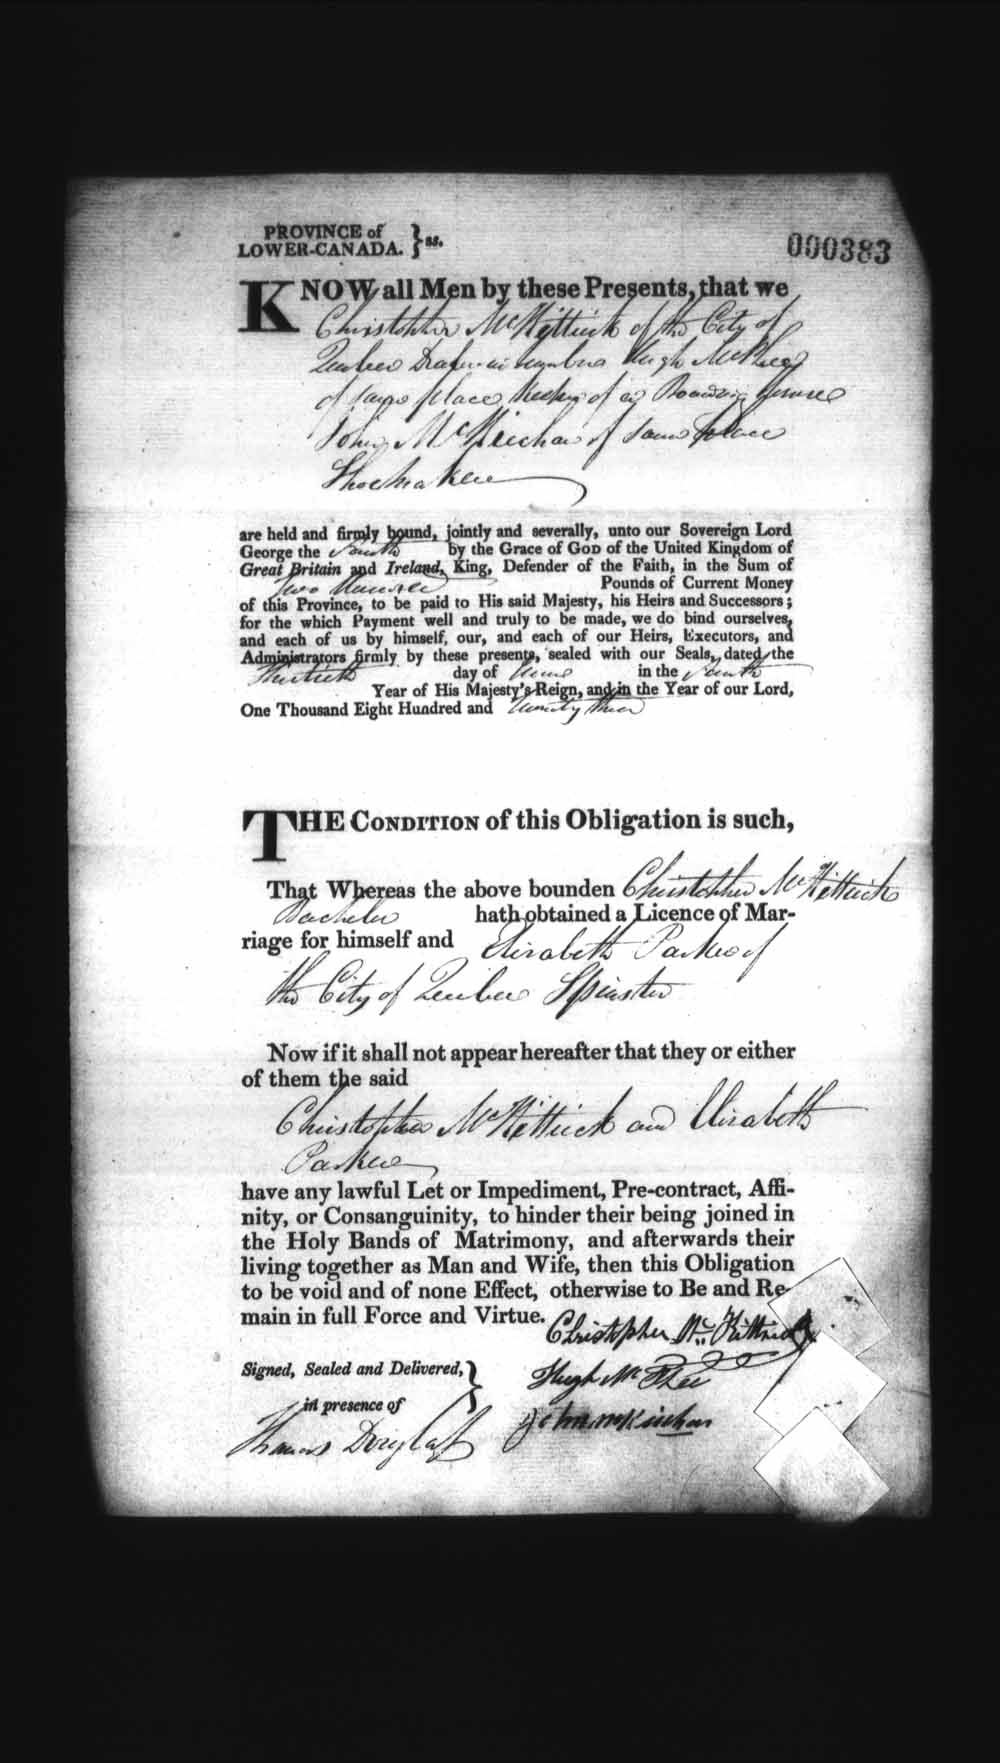 PROVINCE of
LOWER-CANADA. } ss.
000383
KNOW all Men by these Presents, that we
Christopher McKittrick of the City of
Quebec Hugh McPhee
of same place Keeper of a Boarding House
John McKinchan of same place
Shoemaker
are held and firmly bound, jointly and severally, unto our Sovereign Lord
George the Fourth by the Grace of GOD of the United Kingdom of
Great Britain and Ireland, King, Defender of the Faith, in the Sum of
Two Hundred Pounds of Current Money
of this Province, to be paid to His said Majesty, his Heirs and Successors;
for the which Payment well and truly to be made, we do bind ourselves,
and each of us by himself, our, and each of our Heirs, Executors, and
Administrators firmly by these presents, sealed with our Seals, dated the
Thirtieth day of June in the fourth
Year of His Majesty's Reign, and in the Year of our Lord,
One Thousand Eight Hundred and twenty three
THE CONDITION of this Obligation is such,
That Whereas the above bounden Christopher McKittrick
Bachelor hath obtained a Licence of Mar-
riage for himself and Elizabeth Parker of
the City of Quebec Spinster
Now if it shall not appear hereafter that they or either
of them the said
Christopher McKittrick and Elizabeth
Parker
have any lawful Let or Impediment, Pre-contract, Affi-
nity, or Consanguinity, to hinder their being joined in
the Holy Bands of Matrimony, and afterwards their
living together as Man and Wife, then this Obligation
to be void and of none Effect, otherwise to Be and Re-
main in full Force and Virtue.
Christopher McKittrick
Signed, Sealed and Delivered, }
Hugh McPhee
in presence of
John McKinchan
Thomas Douglass